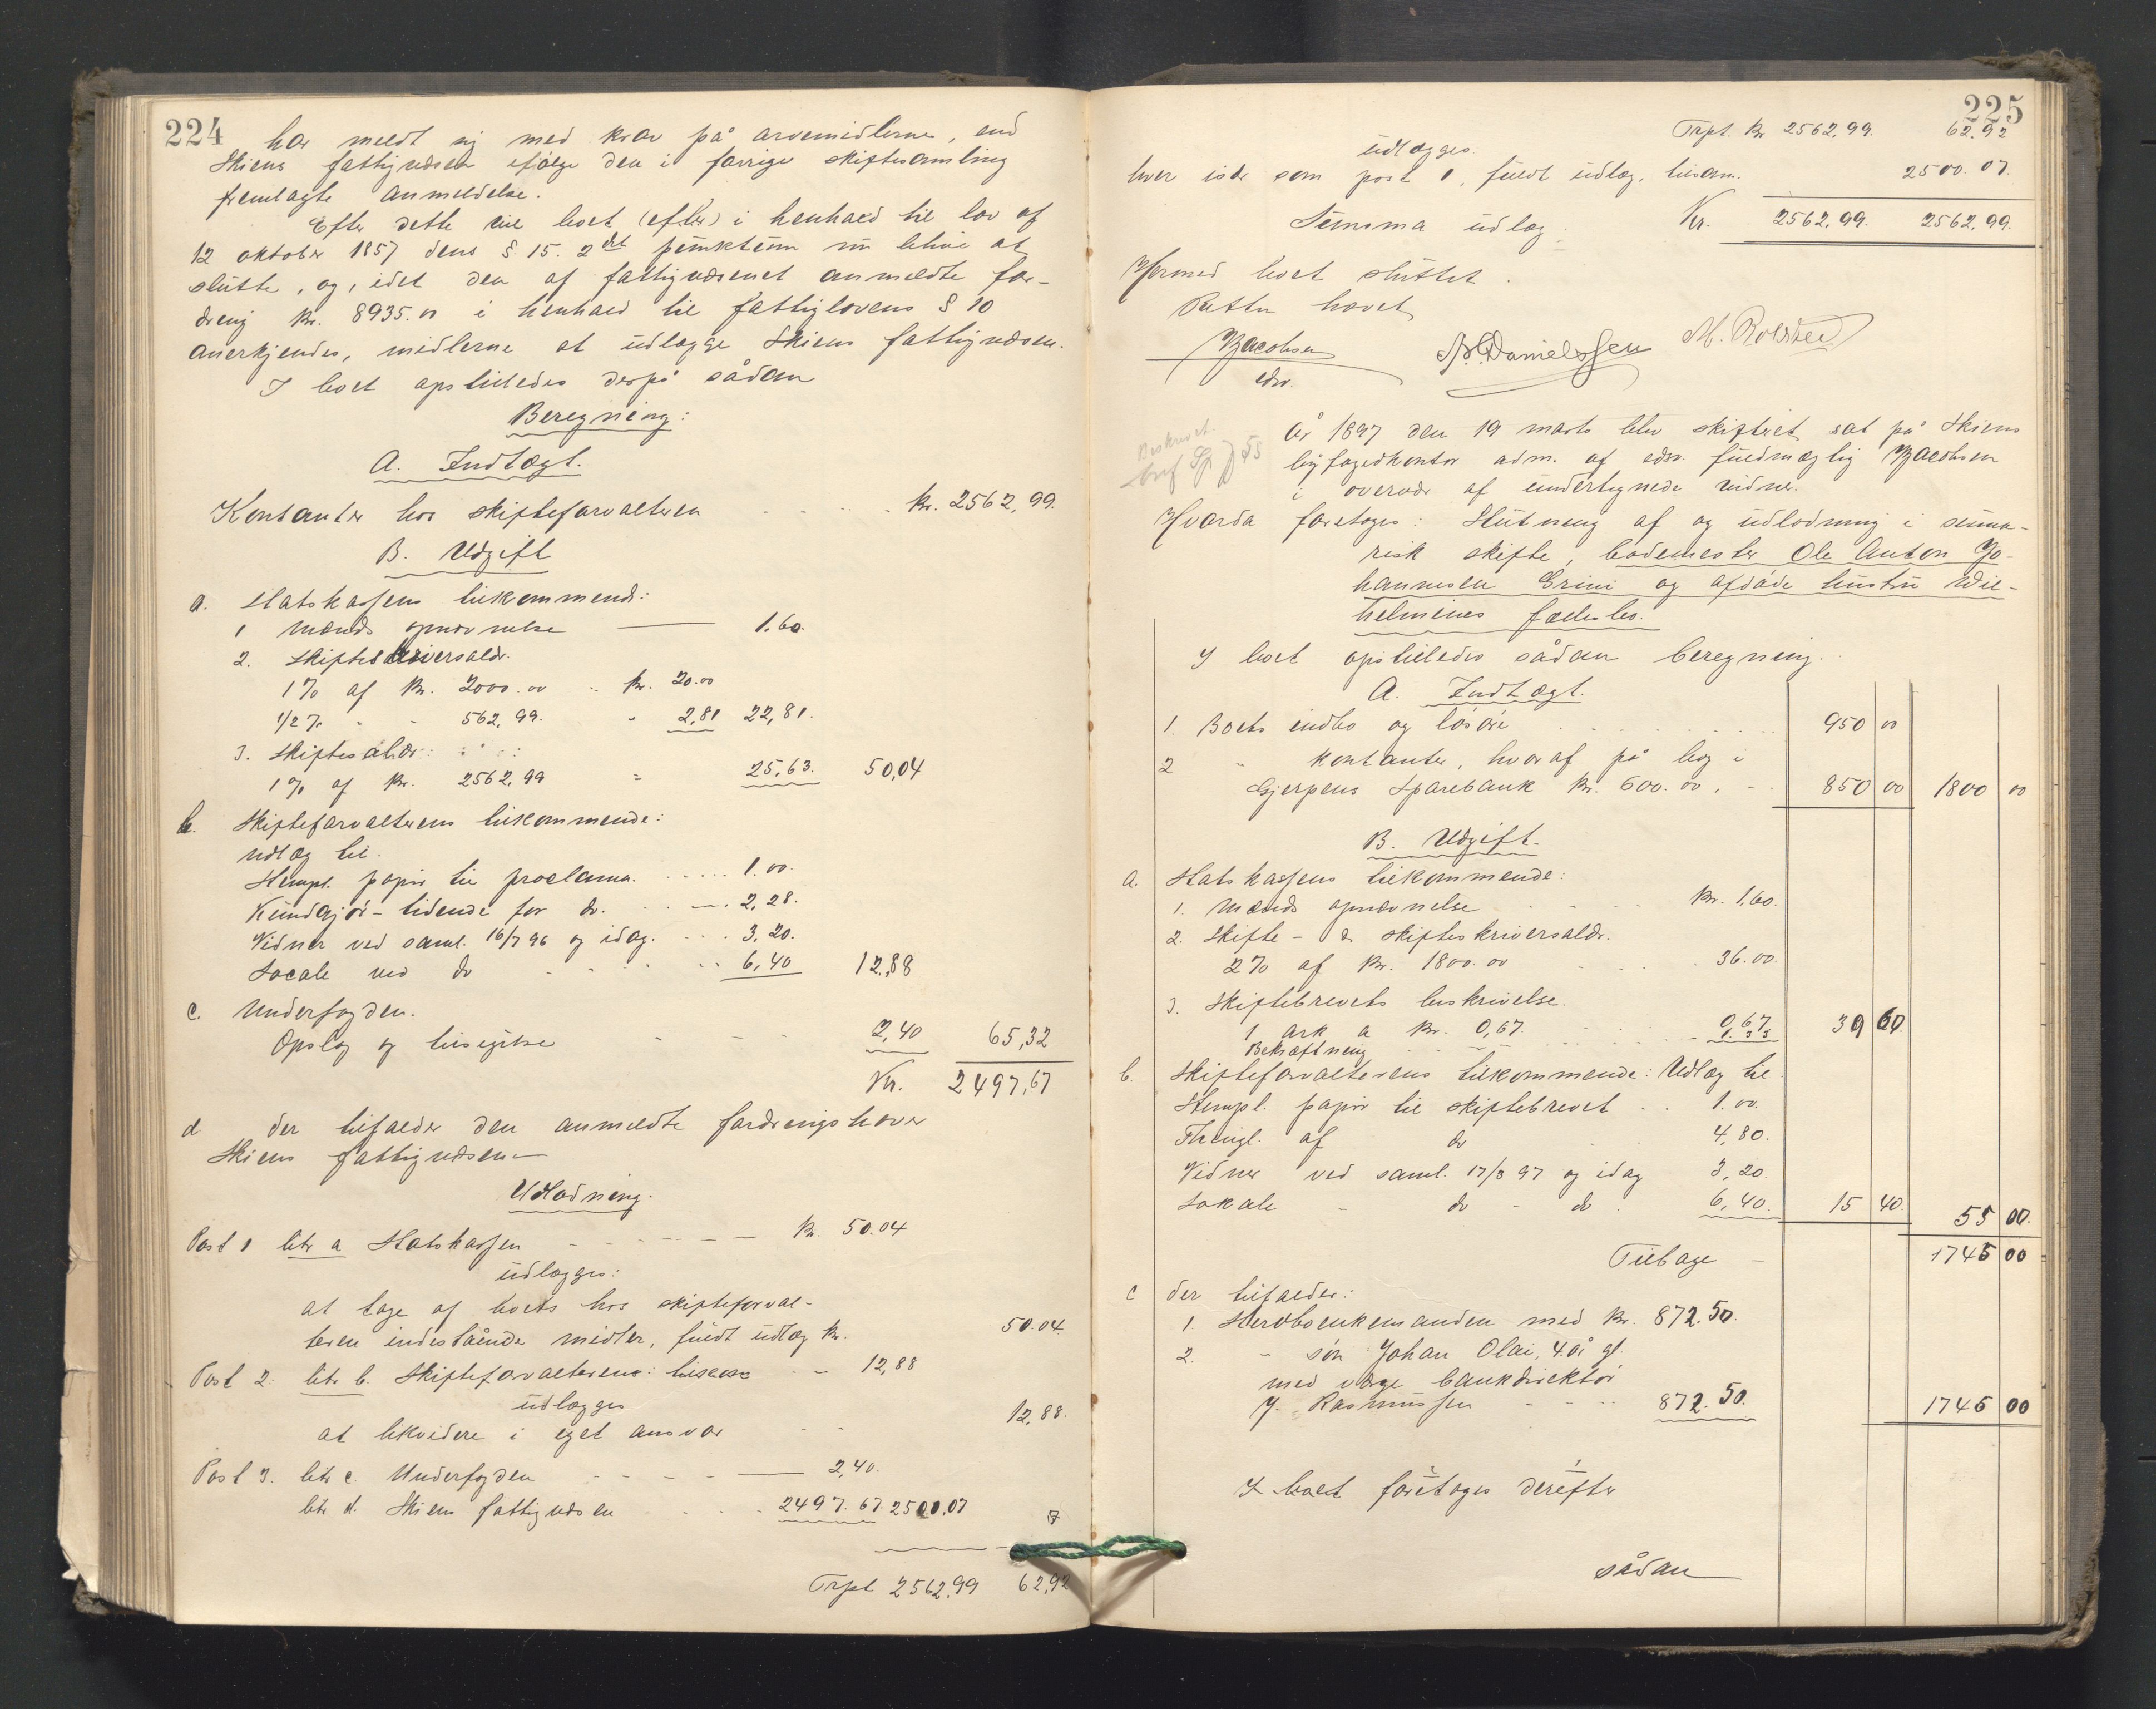 224
har meldt sig med krav på arvemidlerne, end
Skiens fattigvæsen ifølge den i forrige skiftesamling
fremlagte anmeldelse.
Efter dette vil boet (efter) i henhold til lov af
12 oktober 1857 dens § 15. 2det punktum nu blive at
slutte, og, idet den af fattigvæsenet anmeldte for-
dring kr. 8935.00 i henhold til fattiglovens § 10
anerkjendes, midlerne at udlægge Skiens fattigvæsen.
I boet opstilledes derpå sådan
Beregning:
A. Indtægt.
Kontanter hos skifteforvalteren - - - - kr. 2562,99.
B. Udgift
a. Statskassens tilkommende:
1 Mænds opnævnelse — 1.60.
2. Skifteskriversaldr.
1% af kr. 2000.00 - kr. 20.00
1/2 % - - 562,99. - 2,81 22,81.
3. Skiftesaldr:
1% af kr. 2562,99 = 25,63. 50,04
b. Skifteforvalterens tilkommende:
udlæg til.
Stempl. papir til proclama. ..... 1.00.
Kundgjør-tidende for do. . . - . 2,28.
Vidner ved saml. 16/7 96 og idag. . . . 3,20.
Locale ved do - - - - 6,40 12,88
c. Underfogden.
Opslag og tilsigelse - - - 2,40 65,32
Kr. 2497,67
d der tilfalder den anmeldte fordringshaver
Skiens fattigvæsen—
Udlodning.
Post 1 litr a Statskassen - - - - - kr. 50.04
udlægges:
at tage af boets hos skifteforval-
teren indestående midler, fuldt udlæg kr. 50.04.
Post 2. litr b. Skifteforvalterens: - - 12,88
udlægges
at likvidere i eget ansvar - - 12,88.
Post 3. litr c. Underfogden - - - - 2,40.
litr d. Skiens fattigvæsen . . . 2497.67. 2500,07
Trpt 2562.99 62,92
225
Trpt. kr 2562,99. 62,92
udlægges.
hver især som post 1, fuldt udlæg, tilsam. 2500.07.
Summa udlæg: Kr. 2562,99. 2562,99.
Hermed boet sluttet.
Retten hævet
Jacobsen
edsv.
Danielssen
M. Rolsted
Beskrevet.
År 1897 den 19 marts blev skifteret sat på Skiens
byfogedkontor adm. af edsv. fuldmægtig Jacobsen
i overvær af undertegnede vidner.
Hvorda foretoges: Slutning af og udlodning i suma-
risk skifte, bademester Ole Anton Jo-
hannesen Grini og afdøde hustru Wil-
helmines fællesbo.
I boet opstilledes sådan beregning.
A. Indtægt.
1. Boets indbo og løsøre . . . . . . 950 00
2 " kontanter, hvoraf på bog i
Gjerpens Sparebank kr. 600.00. - - 850 00 1800 00
B. Udgift.
a. Statskassens tilkommende:
1. Mænds opnævnelse - - - - kr. 1,60.
2. Skifte- & skifteskriversaldr.
2% af kr. 1800.00 - - - - 36.00.
3. Skiftebrevets beskrivelse.
1 ark a kr. 0,67. . . . . . 0,67.
Bekræftning - - - - - 1.33 39 60.
b. Skifteforvalterens tilkommende: Udlæg til.
Stempl. papir til skiftebrevet . . 1.00.
Thingl. af do . 4,80.
Vidner ved saml. 17/3 97 og idag 3,20.
Lokale - do - do . 6,40. 15 40. 55 00.
Tilbage - 1745 00
c der tilfalder:
1. Stervboenkemanden med kr. 872.50.
2. - søn Johan Olai, 4 år gl.
med værge bankdirektør
J. Rasmussen - - - - 872.50. 1745 00
I boet foretoges derefter
sådan